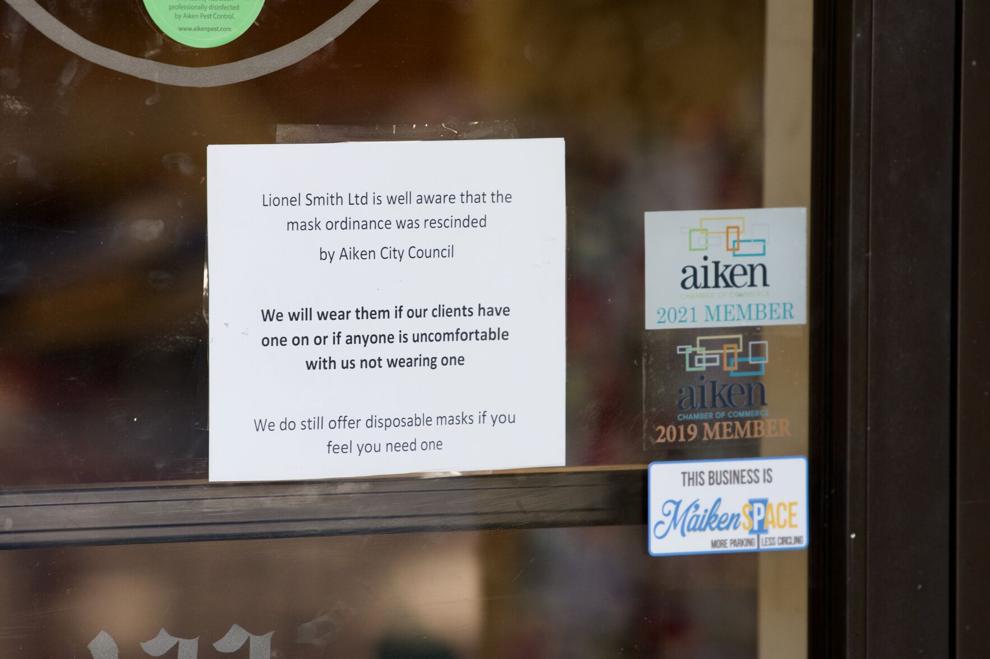 professionally disinfected
by Aiken Pest Control.
www.aikenpest.com
Lionel Smith Ltd is well aware that the
mask ordinance was rescinded
by Aiken City Council
We will wear them if our clients have
one on or if anyone is uncomfortable
with us not wearing one
We do still offer disposable masks if you
feel you need one
aiken
CHAMBER OF COMMERCE
2021 MEMBER
aiken
CHAMBER OF COMMERCE
2019 MEMBER
THIS BUSINESS IS
MaikenSPACE
MORE PARKING LESS CIRCLING